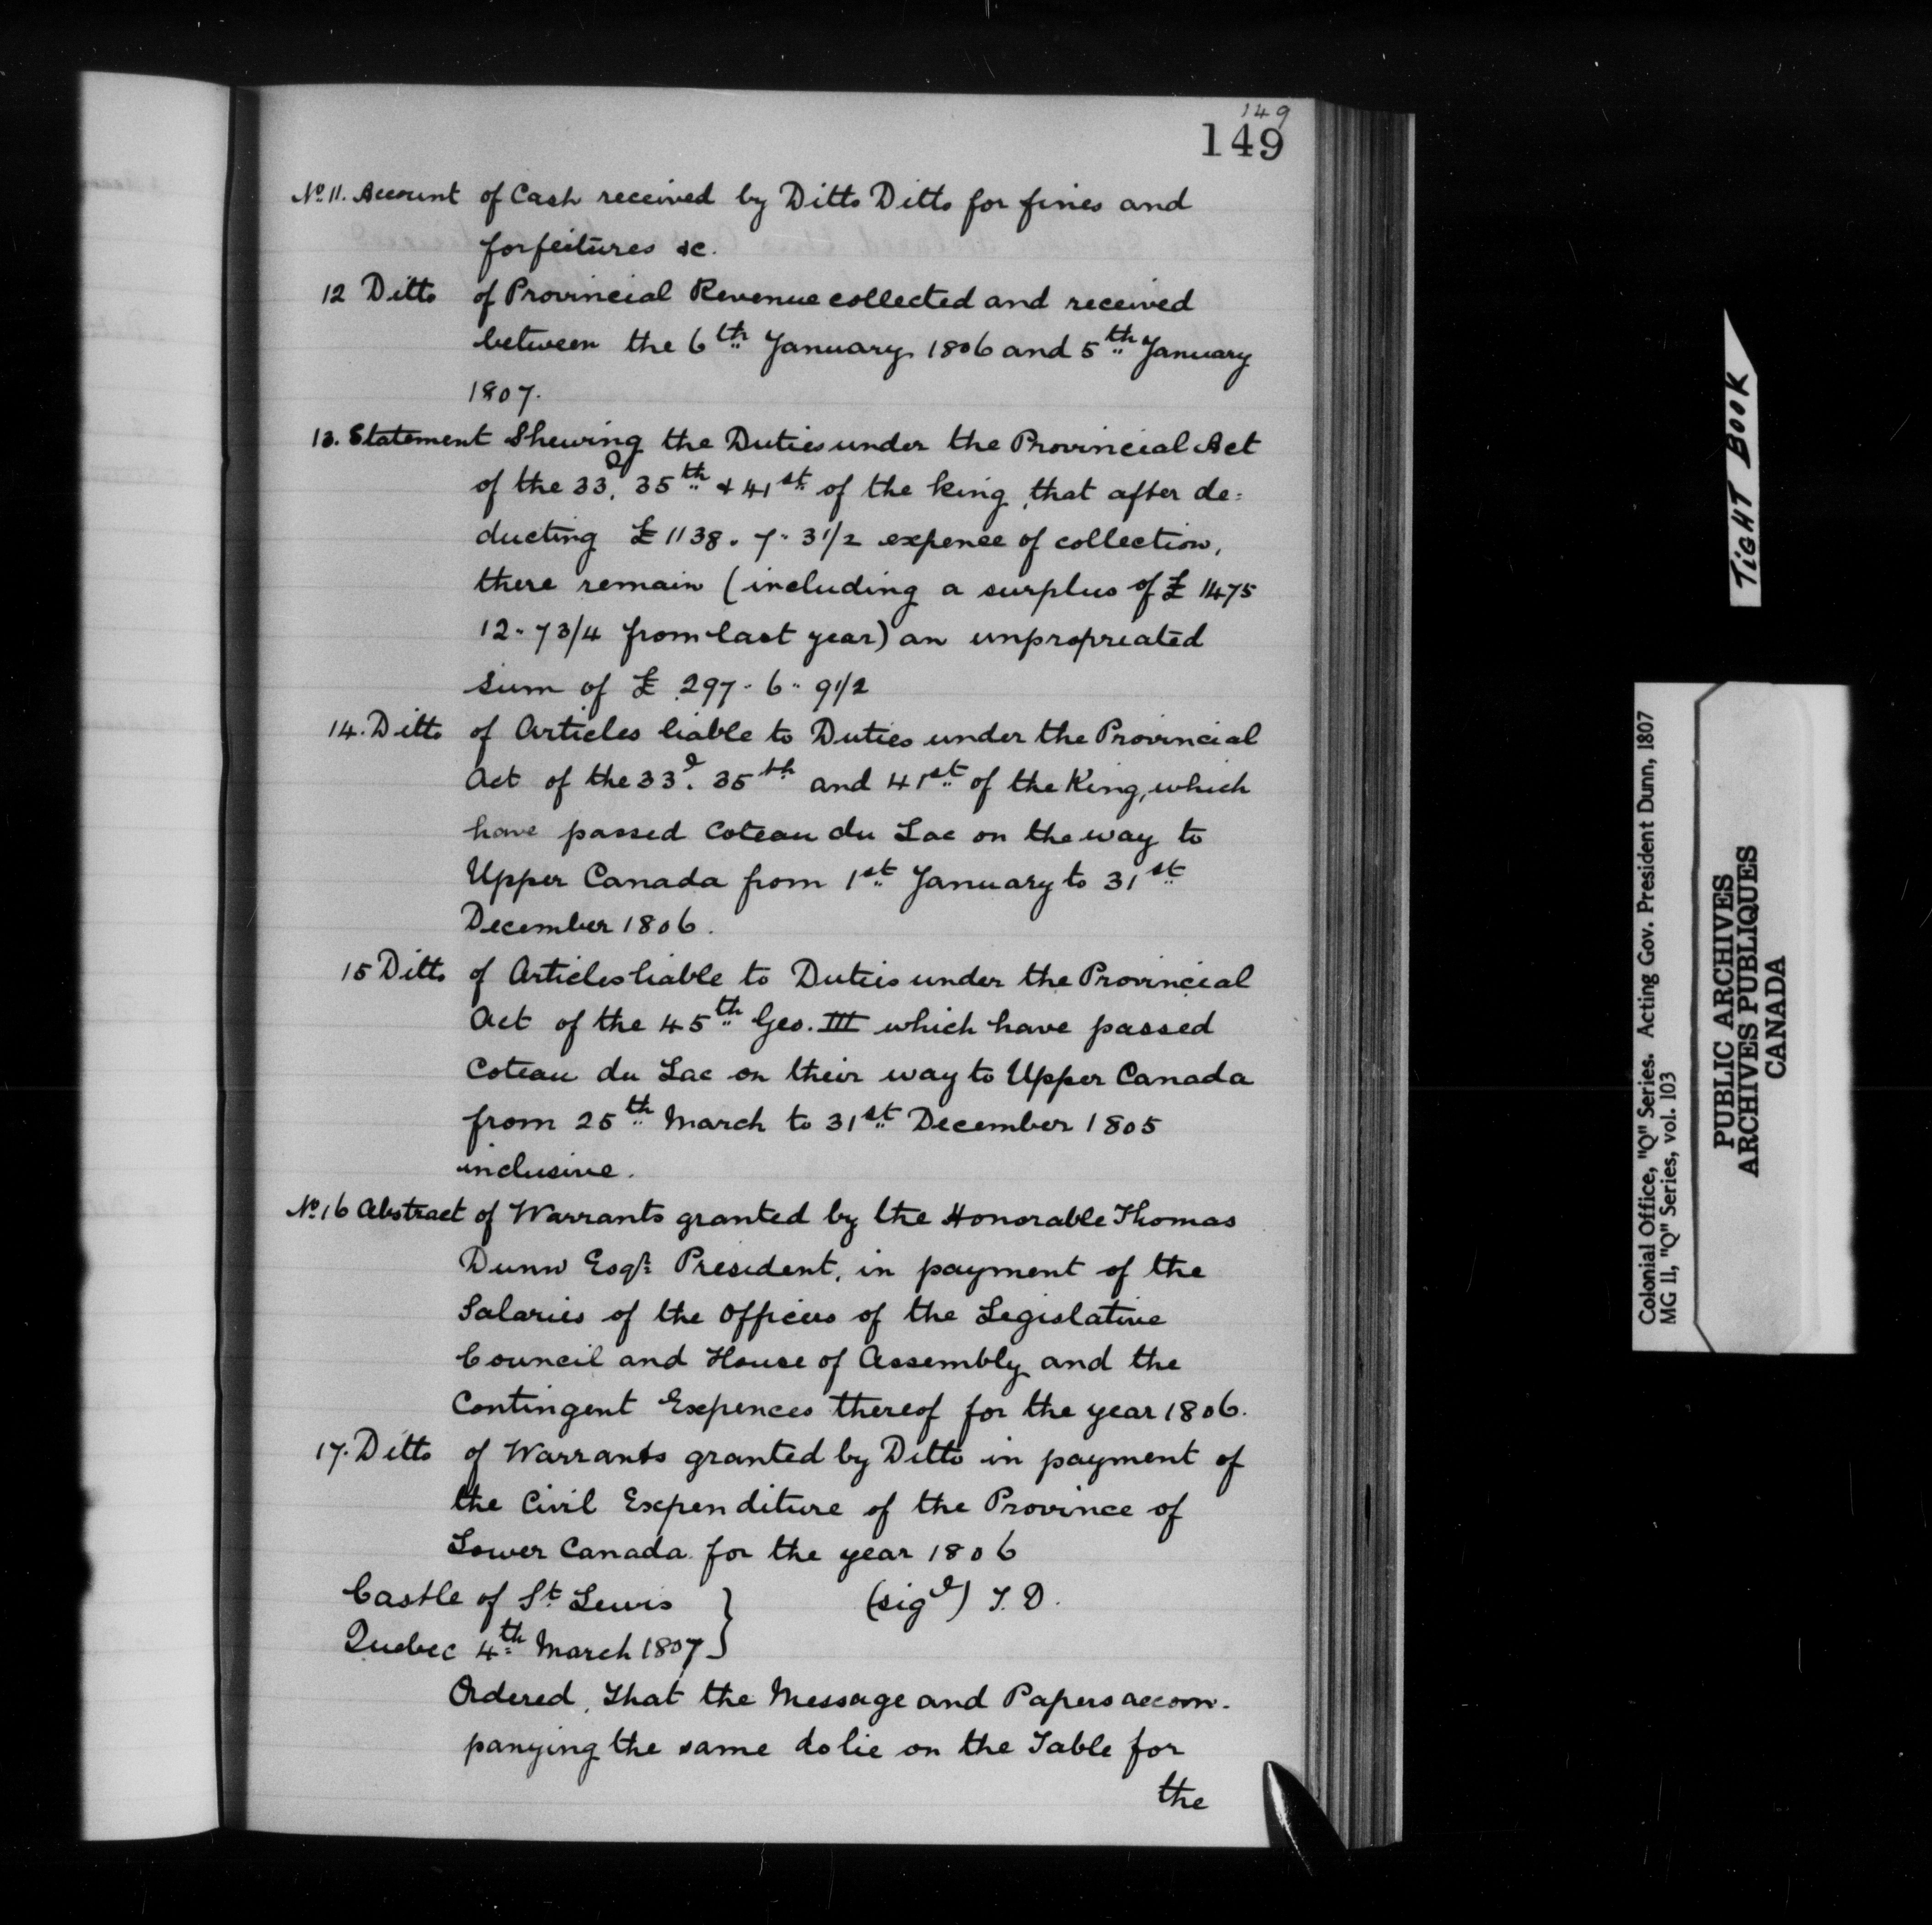 149
149
No. 11. Account of Cash received by Ditto Ditto for fines and
forfeitures &c.
12 Ditto of Provincial Revenue collected and received
between the 6th January 1806 and 5th January
1807.
13. Statement Shewing the Duties under the Provincial Act
of the 33d, 35th & 41st of the King, that after de=
ducting £1138. 7. 3 1/2 expence of collection,
there remain (including a surplus of £ 1475
12. 7 3/4 from last year) an unpropriated
sum of £ 297. 6. 9 1/2
14. Ditto of Articles liable to Duties under the Provincial
Act of the 33d. 35th and 41st of the King, which
have passed Coteau du Lac on the way to
Upper Canada from 1st January to 31st
December 1806.
15 Ditto of Articles liable to Duties under the Provincial
Act of the 45th Geo. III which have passed
Coteau du Lac on their way to Upper Canada
from 25th March to 31st December 1805
inclusive.
No. 16 Abstract of Warrants granted by the Honorable Thomas
Dunn Esqr. President, in payment of the
Salaries of the Officers of the Legislative
Council and House of Assembly and the
Contingent Expences thereof for the year 1806.
17. Ditto of Warrants granted by Ditto in payment of
the Civil Expenditure of the Province of
Lower Canada for the year 1806
Castle of St. Lewis } (sigd) T. D.
Quebec 4th March 1807 }
Ordered, That the Message and Papers accom-
panying the same do lie on the Table for
the
TIGHT BOOK
Colonial Office, "Q" Series. Acting Gov. President Dunn, 1807
MG 11, "Q" Series, vol. 103
PUBLIC ARCHIVES
ARCHIVES PUBLIQUES
CANADA